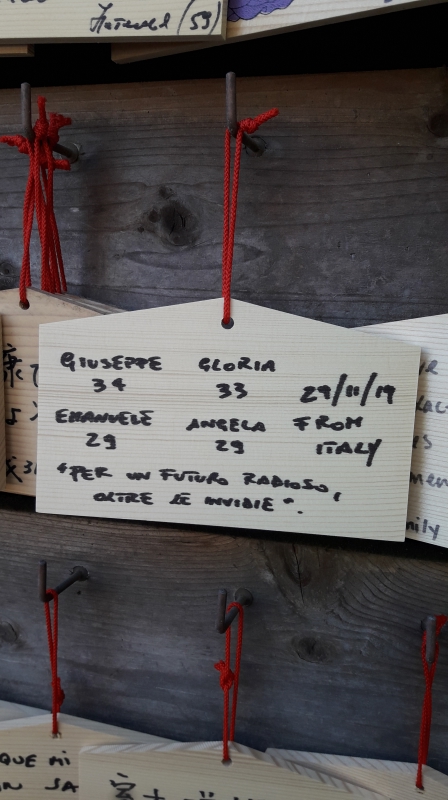 (59)
GIUSEPPE GLORIA
34 33 29/11/19
EMANUELE ANGELA FROM
29 29 ITALY
"PER UN FUTURO RADIOSO,
OLTRE LE INVIDIE".
康
mily
QUE MI
SA